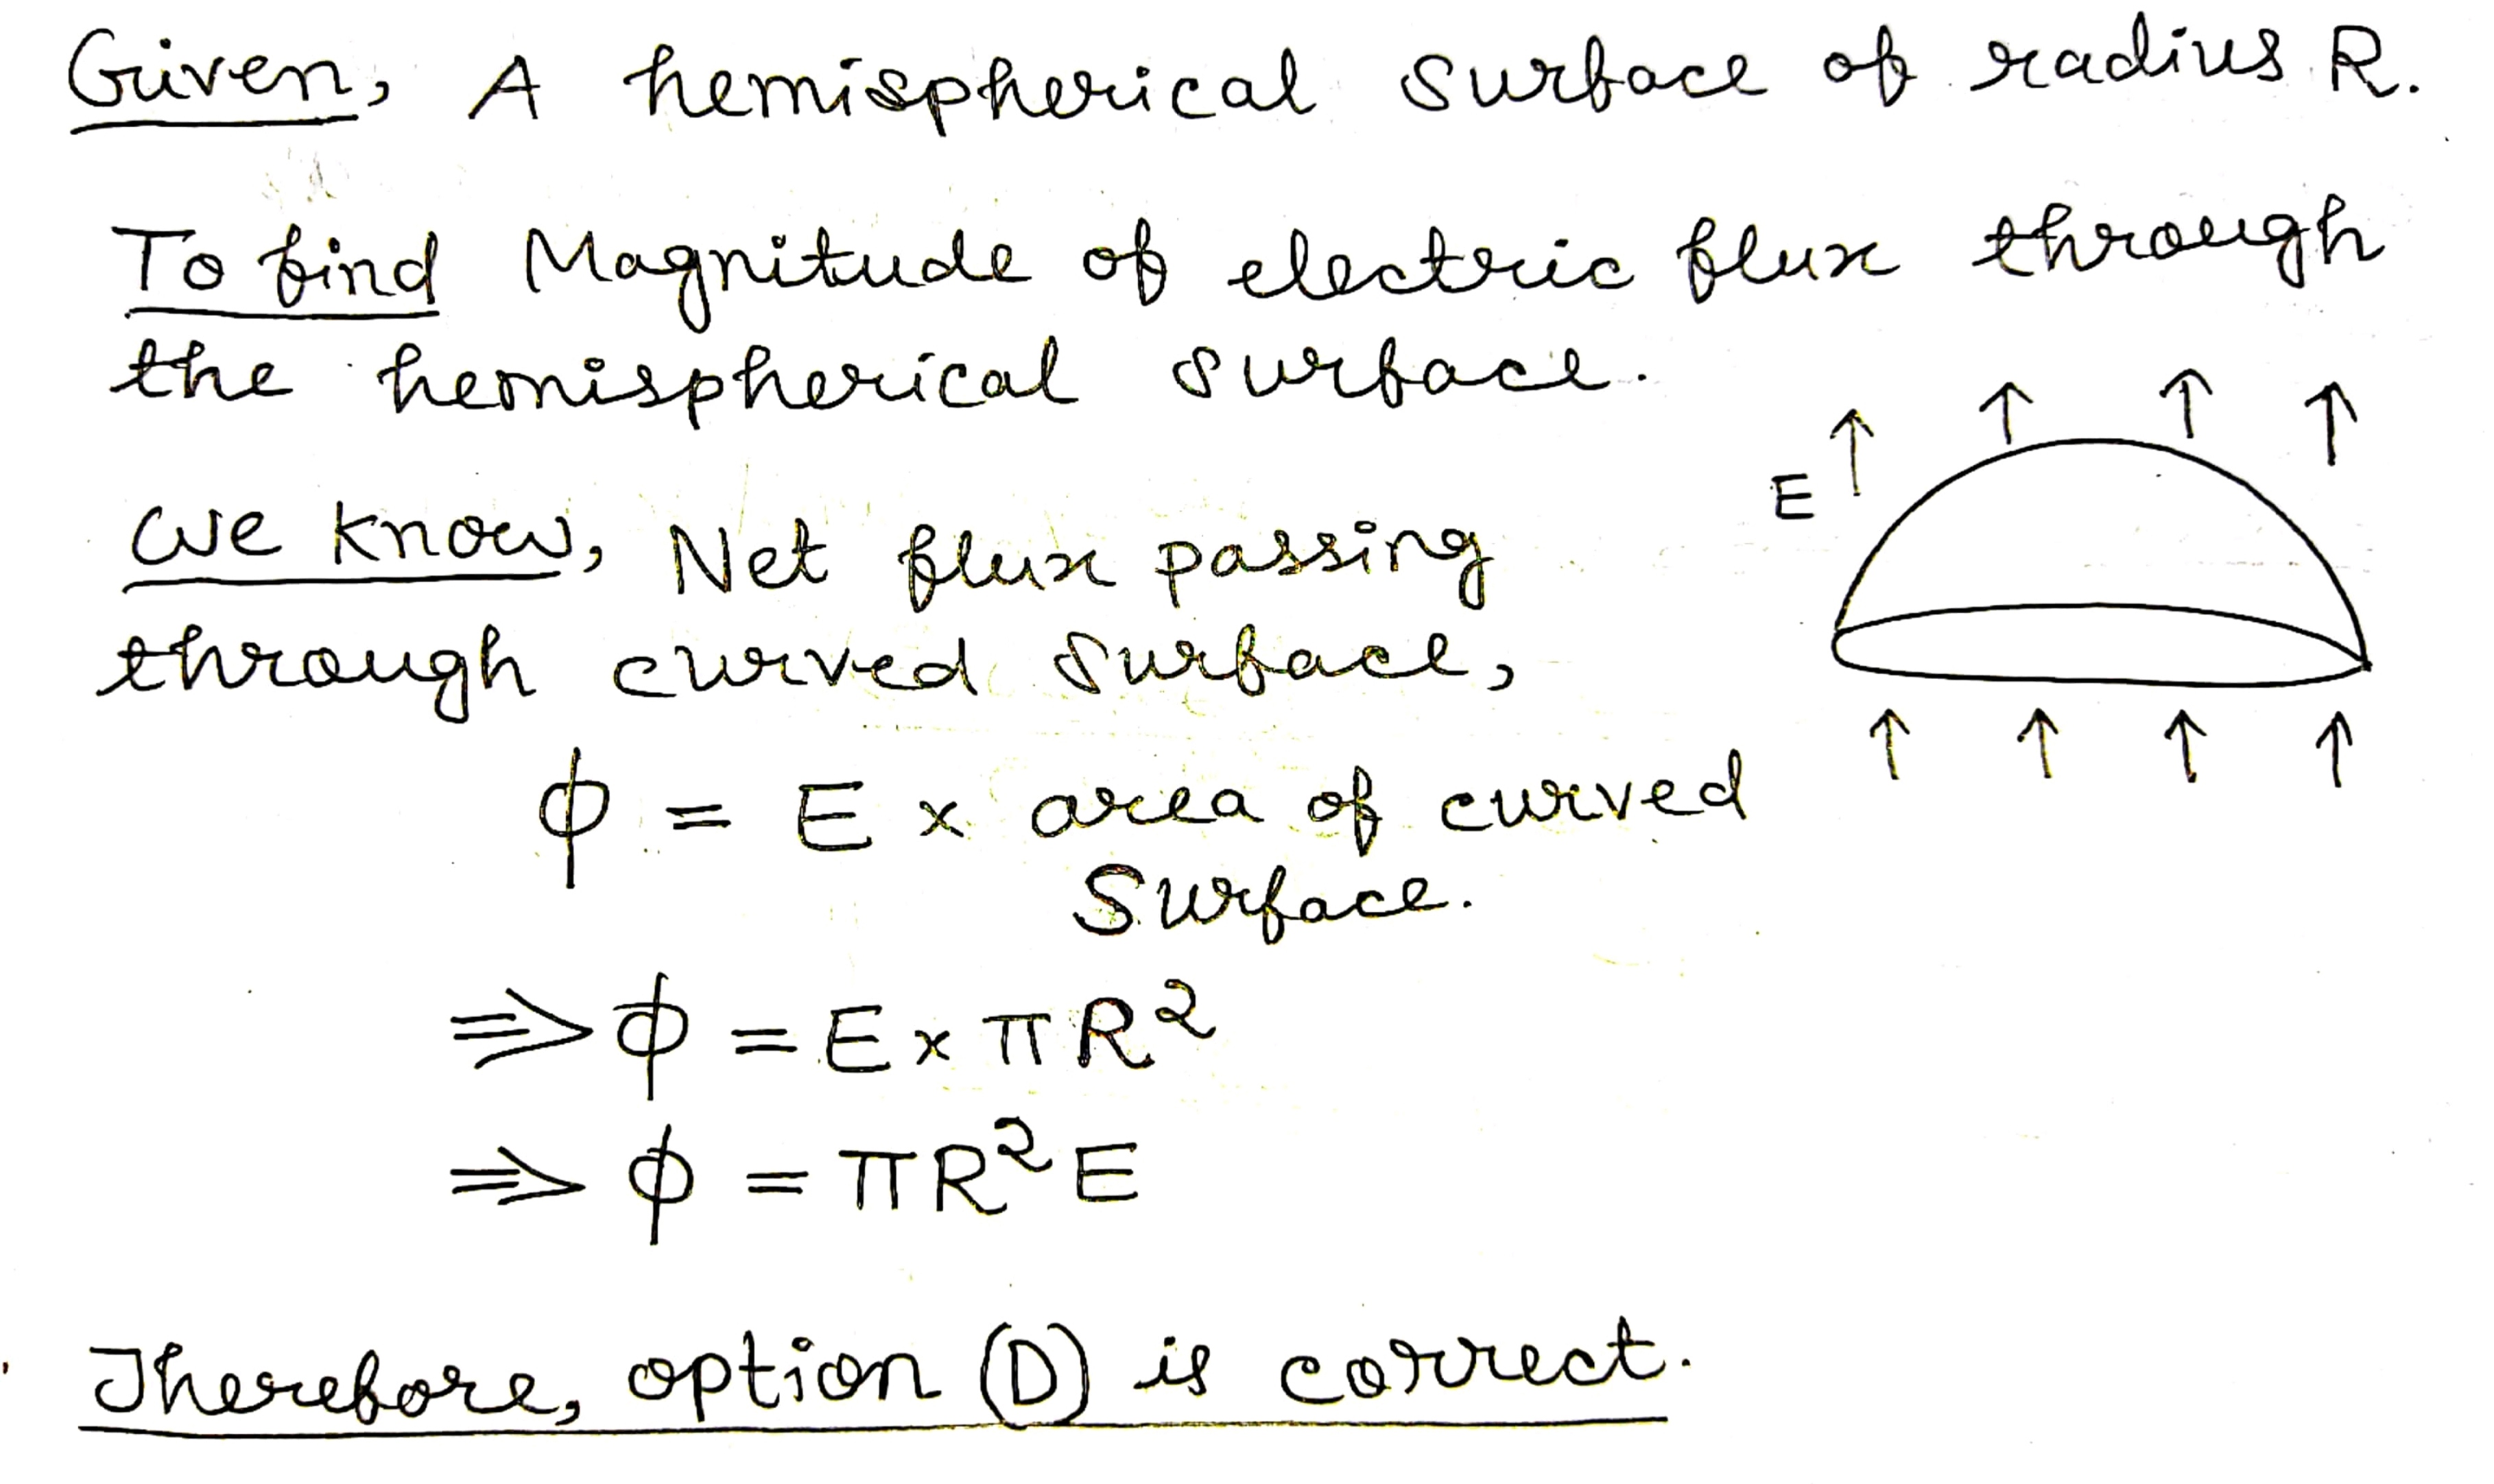 Given, A hemispherical surface of radius R.
To find Magnitude of electric flux through
the hemispherical surface.
E
We know, Net flux passing
through curved surface,
ϕ = E × area of curved
Surface.
⇒ ϕ = E × πR²
⇒ ϕ = πR²E
Therefore, option (D) is correct.